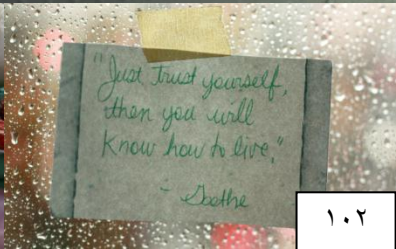 "Just trust yourself,
then you will
know how to live."
- Goethe
١٠٢